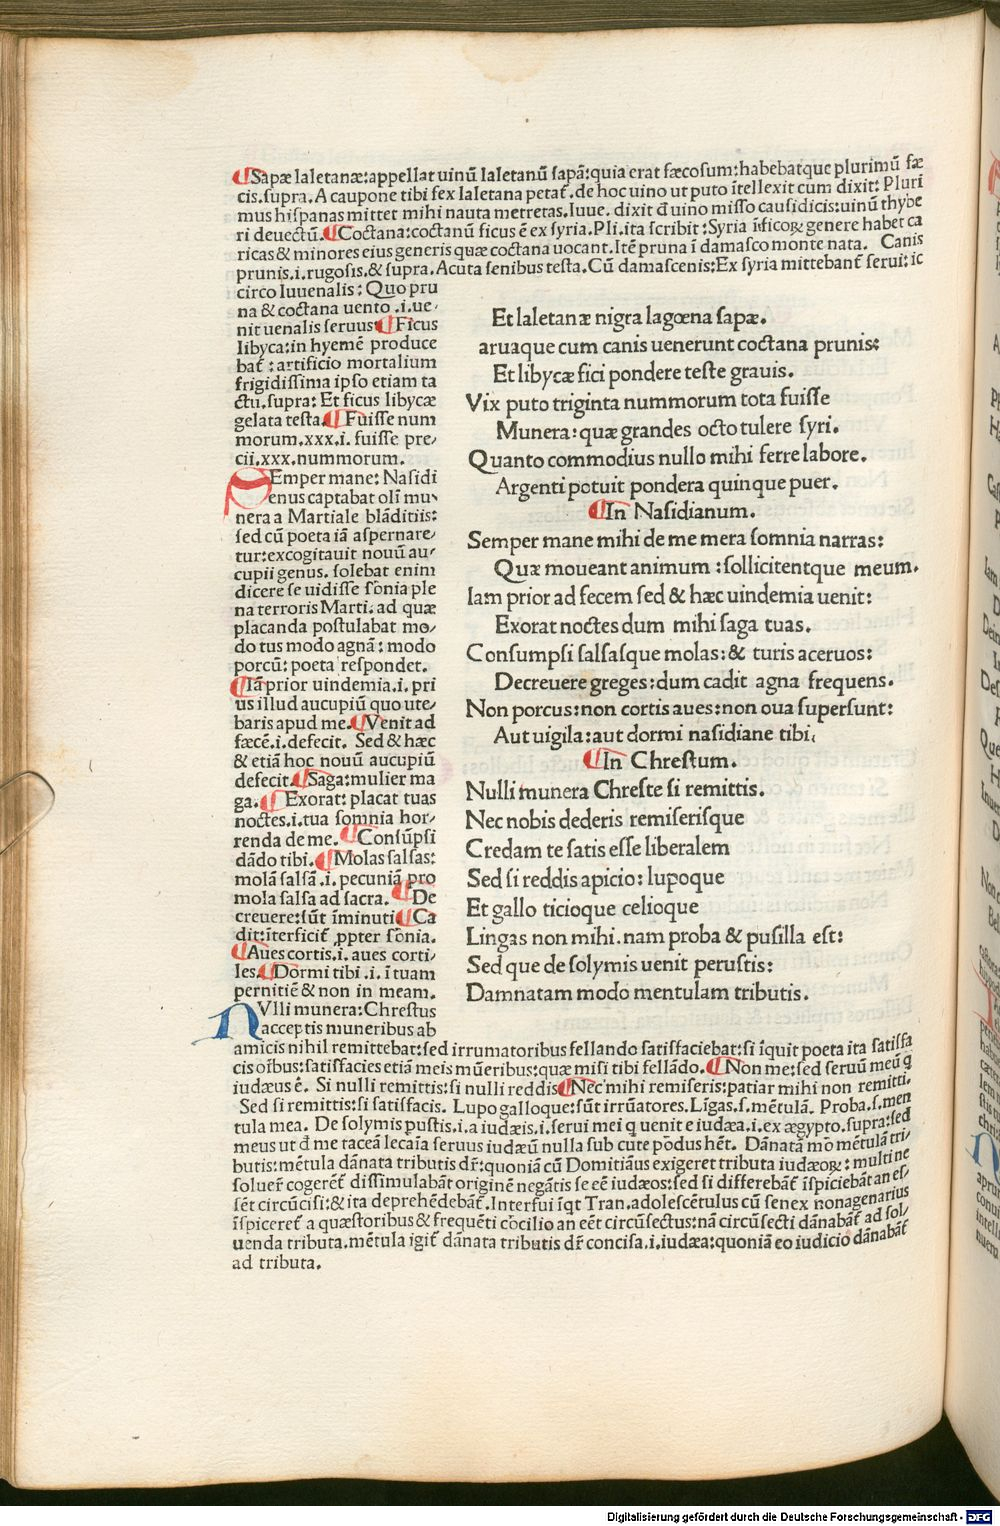 ¶Sapæ laletanæ:appellat uinū laletanū sapā:quia erat fæcosum:habebatque plurimū fæ
cis.supra. A caupone tibi fex laletana petat̄. de hoc uino ut puto ītellexit cum dixit: Pluri
mus hispanas mittet mihi nauta metretas.Iuue. dixit đ uino misso causidicis:uinū thybe
ri deuectū.¶Coctana:coctanū ficus ē ex syria.Pli.ita scribit:Syria ī ficoꝝ genere habet ca
ricas & minores eius generis quæ coctana uocant.Itē pruna ī damasco monte nata. Canis
prunis.i.rugosis.& supra.Acuta senibus testa.Cū damascenis:Ex syria mittebant̄ serui:ic
circo Iuuenalis: Quo pru
na & coctana uento .i.ue/
nit uenalis seruus¶Ficus
libyca:in hyemē produce
bat̄:artificio mortalium
frigidissima ipso etiam ta
ctu.supra: Et ficus libycæ
gelata testa.¶Fuisse num
morum.xxx.i. fuisse pre/
cii.xxx.nummorum.
SEmper mane: Nasidi
enus captabat oli mu/
nera a Martiale blāditiis:
sed cū poeta iā aspernare/
tur:excogitauit nouū au/
cupii genus. solebat enim
dicere se uidisse sōnia ple
na terroris Marti. ad quæ
placanda postulabat mo/
do tus modo agnā: modo
porcū: poeta respondet.
¶Iā prior uindemia.i. pri
us illud aucupiū quo ute/
baris apud me.¶Venit ad
fæcē.i.defecit. Sed & hæc
& etiā hoc nouū aucupiū
defecit.¶Saga:mulier ma
ga.¶Exorat: placat tuas
noctes.i.tua somnia hor/
renda de me. ¶Consūpsi
dādo tibi.¶Molas salsas:
molā salsā .i. pecuniā pro
mola salsa ad sacra. ¶De
creuere:sūt īminuti¶Ca
dit:īterficit̄ ꝓpter sōnia.
¶Aues cortis.i. aues corti/
les.¶Dormi tibi .i. ī tuam
pernitiē & non in meam.
NVlli munera:Chrestus
acceptis muneribus ab
Et laletanæ nigra lagœna sapæ.
aruaque cum canis uenerunt coctana prunis:
Et libycæ fici pondere teste grauis.
Vix puto triginta nummorum tota fuisse
Munera:quæ grandes octo tulere syri.
Quanto commodius nullo mihi ferre labore.
Argenti potuit pondera quinque puer.
¶In Nasidianum.
Semper mane mihi de me mera somnia narras:
Quæ moueant animum :sollicitentque meum.
Iam prior ad fecem sed & hæc uindemia uenit:
Exorat noctes dum mihi saga tuas.
Consumpsi salsasque molas:& turis aceruos:
Decreuere greges:dum cadit agna frequens.
Non porcus:non cortis aues:non oua supersunt:
Aut uigila:aut dormi nasidiane tibi.
¶In Chrestum.
Nulli munera Chreste si remittis.
Nec nobis dederis remiserisque
Credam te satis esse liberalem
Sed si reddis apicio: lupoque
Et gallo ticioque celioque
Lingas non mihi.nam proba & pusilla est:
Sed que de solymis uenit perustis:
Damnatam modo mentulam tributis.
amicis nihil remittebat:sed irrumatoribus fellando satisfaciebat:si īquit poeta ita satisfa
cis oībus:satisfacies etiā meis mūeribus:quæ misi tibi fellādo.¶Non me:sed seruū meū q
iudæus ē. Si nulli remittis:si nulli reddis¶Nec mihi remiseris:patiar mihi non remitti.
Sed si remittis:si satisfacis. Lupo galloque:sūt irrūatores. Līgas.s.mētulā. Proba.s.men
tula mea. De solymis pustis.i.a iudæis.i.serui mei q uenit e iudæa.i.ex ægypto.supra:sed
meus ut đ me taceā lecaīa seruus iudæū nulla sub cute pōdus het̄. Dānatā mō mētulā tri/
butis:mētula dānata tributis dr̄:quoniā cū Domitiāus exigeret tributa iudæoꝝ: multi ne
soluer̄ coger̄et̄ dissimulabāt originē negātis se eē iudæos:sed si differebāt̄ īspiciebāt an es/
sēt circūcisi:& ita deprehēdebāt̄.Interfui īqt Tran.adolescētulus cū senex nonagenarius
īspiceret̄ a quæstoribus & frequēti cōcilio an eēt circūsectus:nā circūsecti dānabāt̄ ad sol/
uenda tributa.mētula igit̄ dānata tributis dr̄ concisa.i.iudæa:quoniā eo iudicio dānabāt̄
ad tributa.
Digitalisierung gefördert durch die Deutsche Forschungsgemeinschaft - DFG